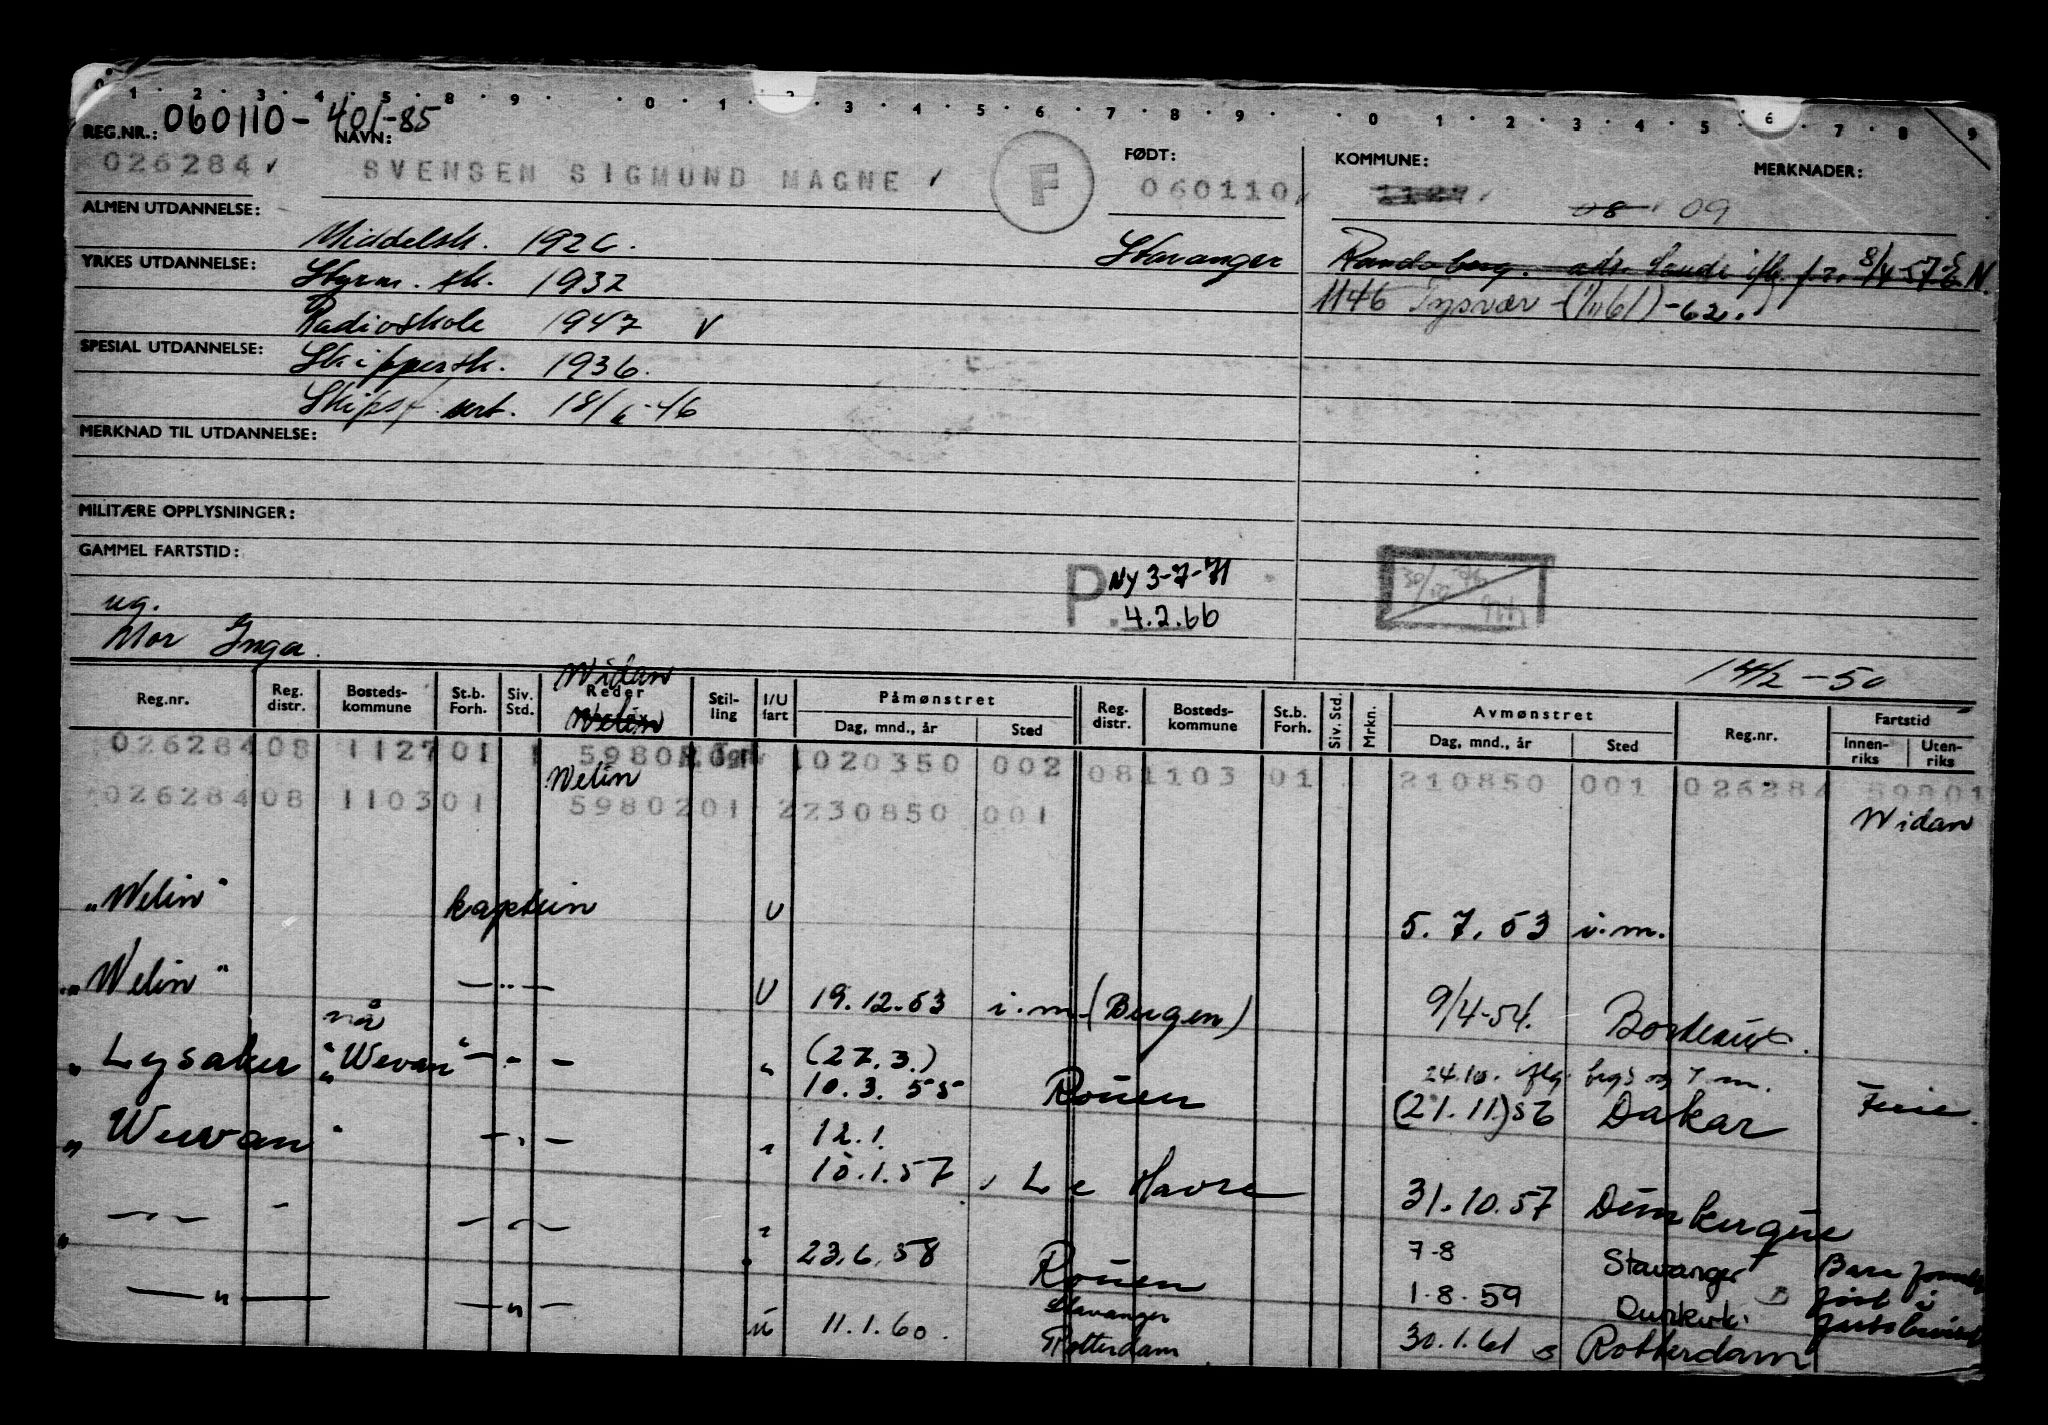 0 · 1 · 2 · 3 · 4 · 5 · 8 · 9 · · 0 · 1 · 2 · 3 · 4 · 5 · 6 · 7 · 8 · 9 · · 0 · 1 · 2 · 3 · 4 · 5 · 6 · 7 · 8 · 9
REG.NR.: 060110-401-85 NAVN: FØDT: KOMMUNE: MERKNADER:
026284 SVENSEN SIGMUND MAGNE F 060110 08 09
ALMEN UTDANNELSE: Middelsk. 1926. Stavanger Randaberg. adr. Sauda ifl. 8/4-57 EN.
YRKES UTDANNELSE: Styrm. sk. 1932 1146 Tysvær - (1/11 61) - 62.
Radioskole 1947 v
SPESIAL UTDANNELSE: Skippersk. 1936.
Skipsf. sert. 18/6-46
MERKNAD TIL UTDANNELSE:
MILITÆRE OPPLYSNINGER:
GAMMEL FARTSTID:
P. NY 3-7-71
4.2.66
ug.
Mor Inga.
14/2-50
Widan
Reg.nr. Reg. distr. Bosteds- kommune St.b. Forh. Siv. Std. Reder Stil- ling I/U fart Påmønstret Dag, mnd., år Sted Reg. distr. Bosteds- kommune St.b. Forh. Siv. Std. Mrkn. Avmønstret Dag, mnd., år Sted Reg.nr. Fartstid Innen- riks Uten- riks
Welin
026284 08 1127 01 1 5980 1020350 002 08 1103 01 210850 001 026284 59801
Welin
026284 08 1103 01 5980201 2230850 001 Widan
"Welin" kaptein U 5.7.53 i.m.
"Welin" — " — U 19.12.53 i.m. (Bergen) 9/4-54. Bordeaux.
nå
" Lysaker "Wevan" — " — " (27.3.) 10.3.55 Rouen 24.10. iflg. (21.11) 56 Dakar Ferie.
" Wevan" — " — " 12.1. 10.1.57 Le Havre 31.10.57 Dunkerque
— " — — " — " 23.6.58 Rouen 7-8 Stavanger Bare
1.8.59 Dunkirk først i
— " — — " — U 11.1.60. Stavanger Rotterdam 30.1.61 Rotterdam